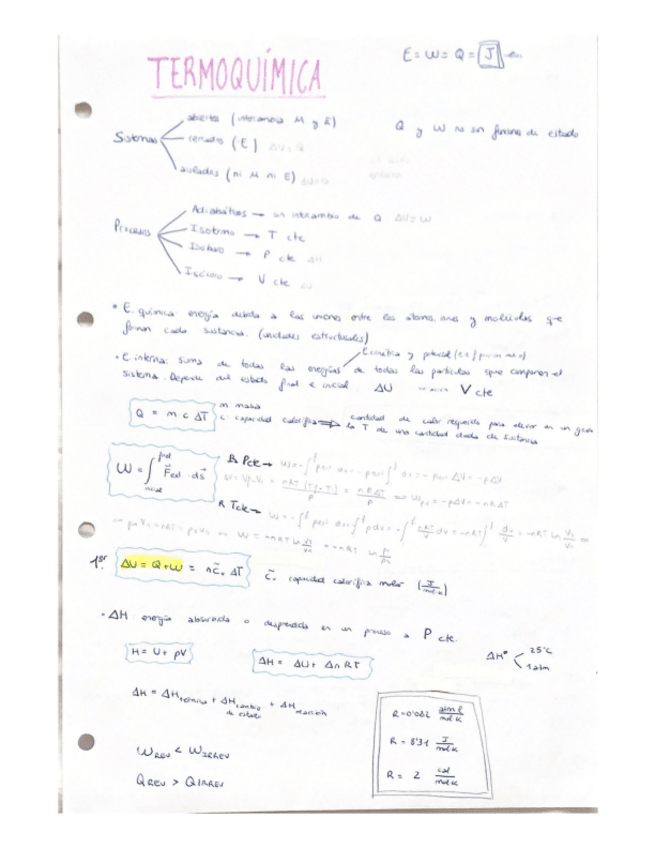 E = W = Q = J
TERMOQUÍMICA
Sistemas
abiertos (intercambia M y E)
cerrados (·E) ΔU = Q
aislados (ni M ni E)
Q y W no son funciones de estado
Procesos
Adiabáticos → sin intercambio de Q ΔU = W
Isotermo → T cte
Isobaro → P cte ΔH
Isócoro → V cte ΔU
• E. química: energía debida a las uniones entre los átomos, iones y moléculas que
forman cada sustancia. (unidades estructurales)
E cinética y potencial
• E. interna: suma de todas las energías de todas las partículas que componen el
sistema. Depende del estado final e inicial. ΔU V cte
Q = m c ΔT
m masa
c. capacidad calorífica ⇒ cantidad de calor requerida para elevar en un grado
la T de una cantidad dada de sustancia
W = ∫ inicial final F ext · ds
A P cte →
A T cte →
1er ΔU = Q + W = n c̃v ΔT c̃v capacidad calorífica molar (J / mol·K)
• ΔH energía absorbida o desprendida en un proceso a P cte.
H = U + pV
ΔH = ΔU + Δn RT
ΔHº 25ºC
1 atm
ΔH = ΔH térmico + ΔH cambio de estado + ΔH reacción
R = 0'082 atm·l / mol·K
R = 8'31 J / mol·K
R = 2 cal / mol·K
W REV < W IRREV
Q REV > Q IRREV